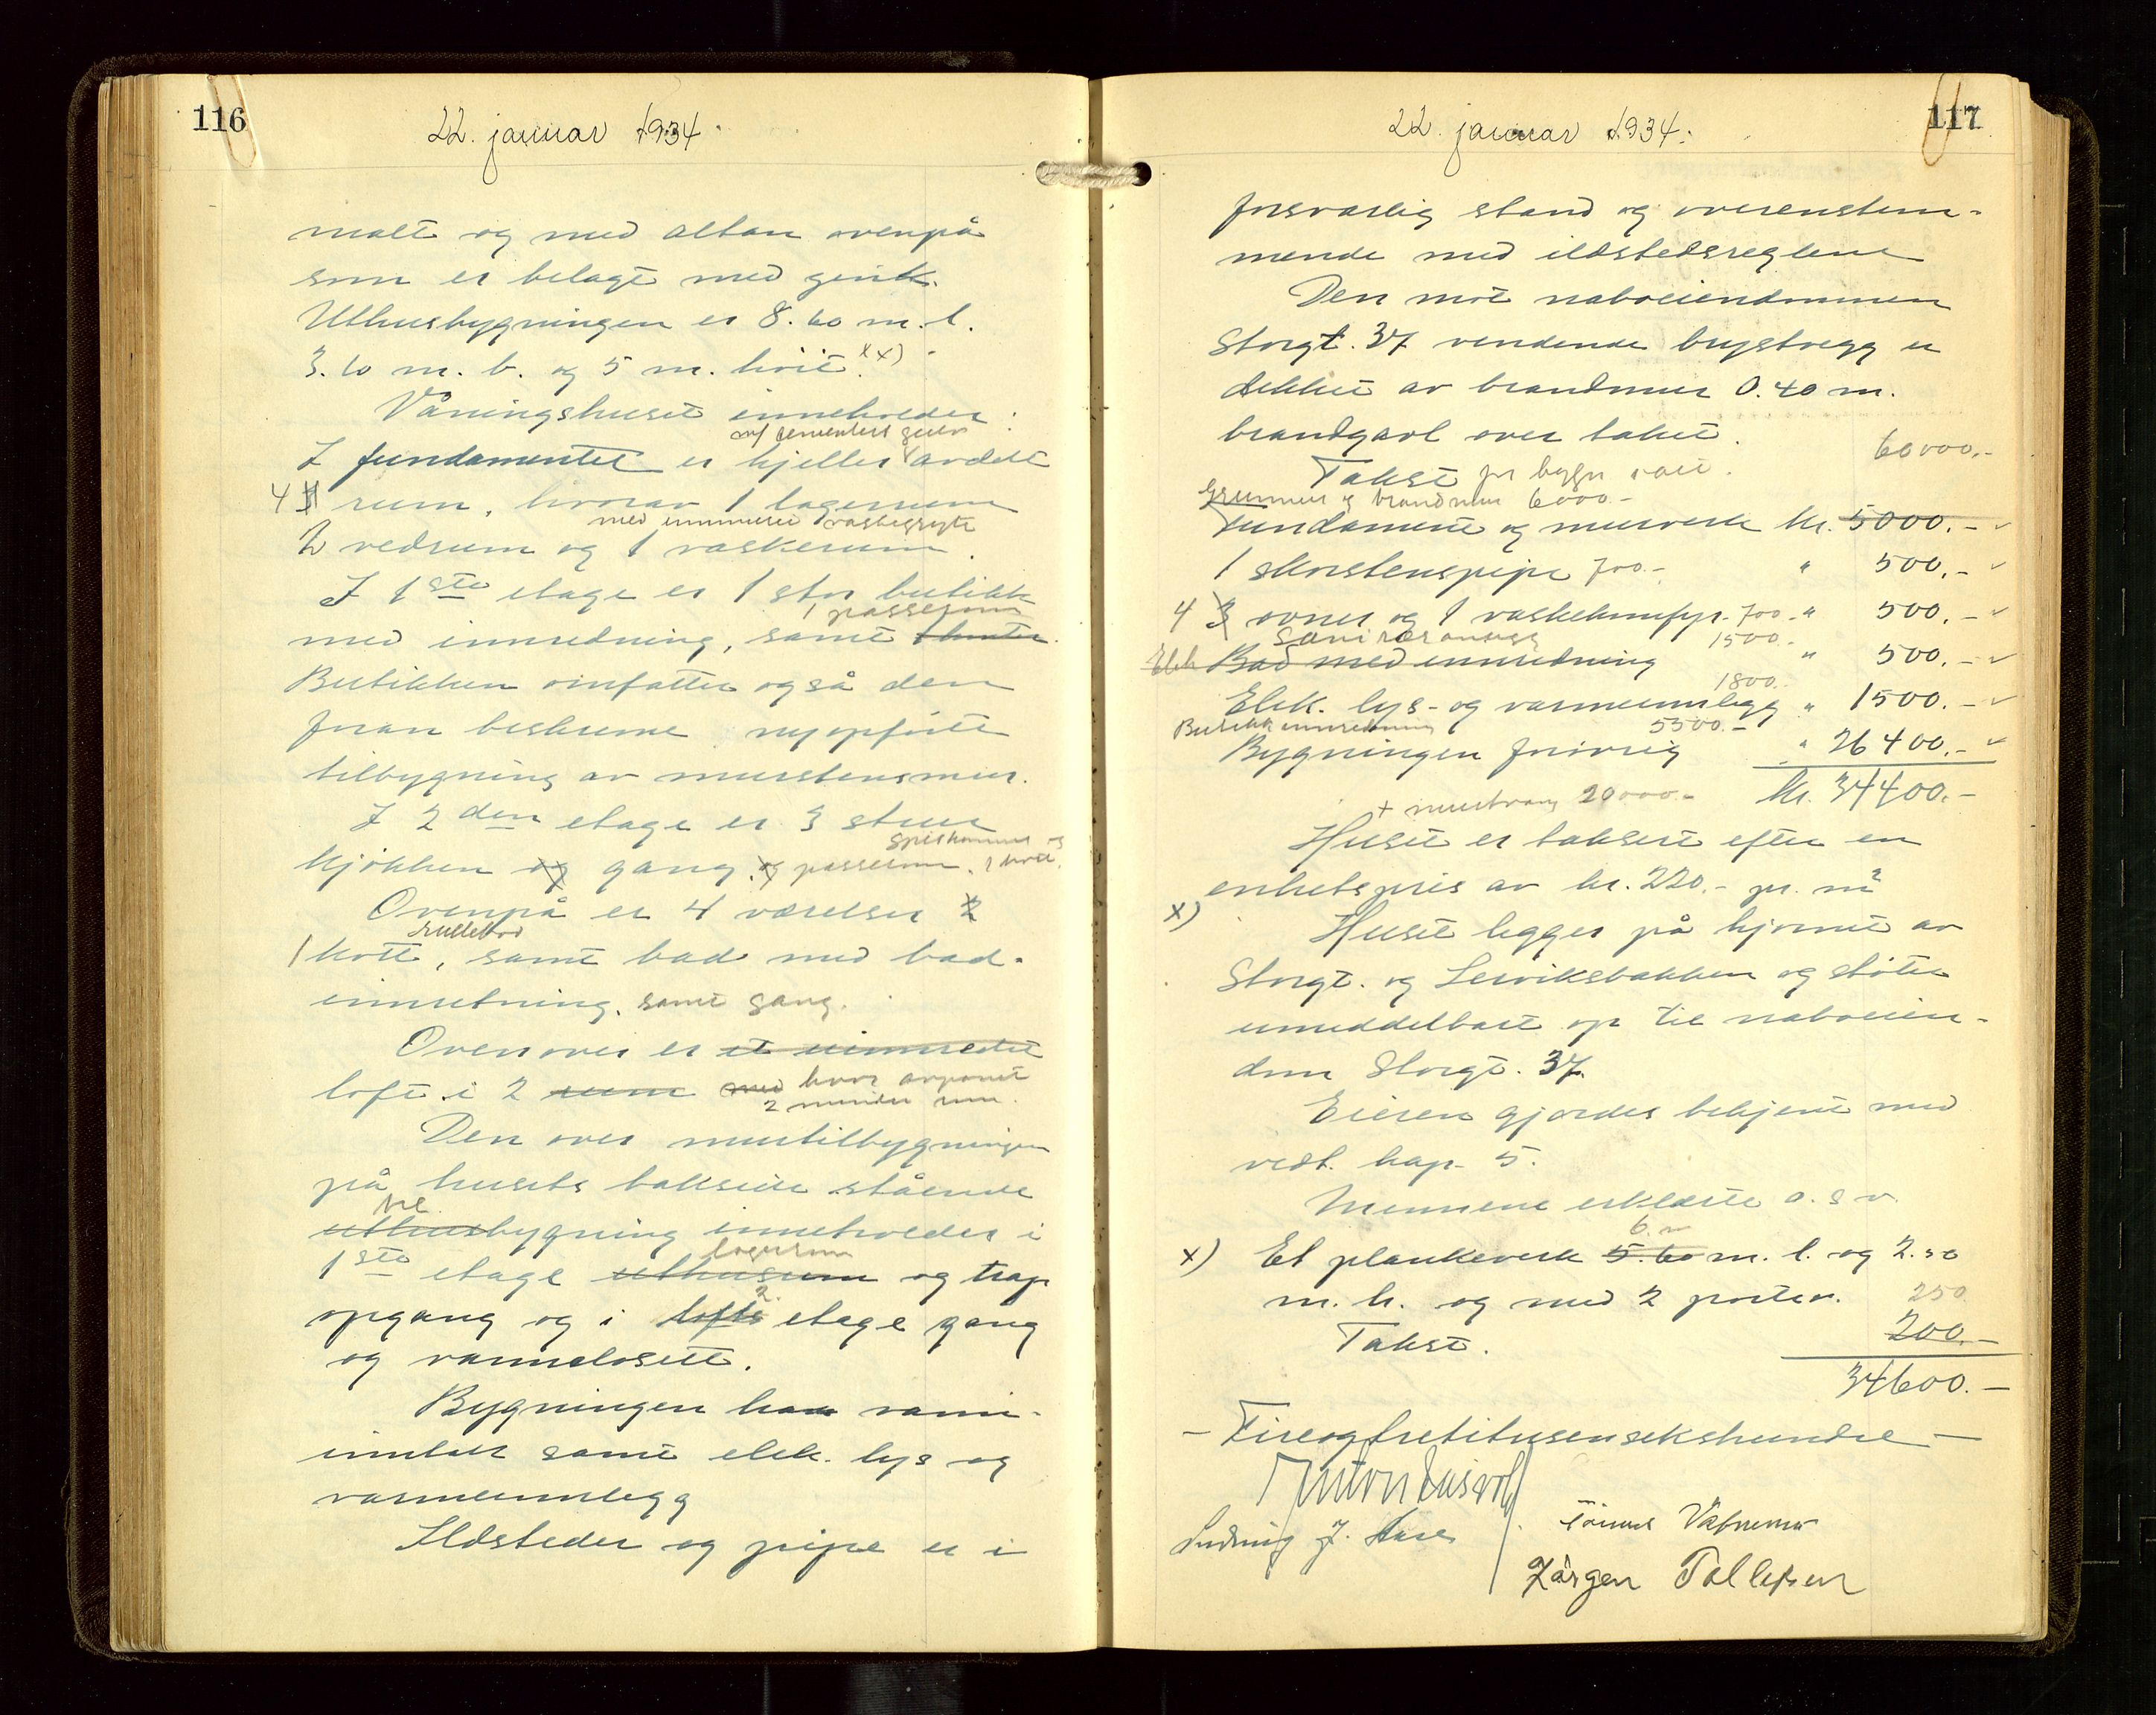 116
22. januar 1934.
malt og med altan ovenpå
som er belagt med zink.
Uthusbygningen er 8.60 m. l.
3.60 m. b. og 5 m. høit. xx)
Våningshuset inneholder:
m/ cementert gulv
I fundamentet er kjeller avdelt
4 rum, hvorav 1 lagerrum
med innmuret vaskegryte
2 vedrum og 1 vaskerum.
I 1ste etage er 1 stor butikk
1 passerum
med innredning, samt
Butikken omfatter også den
foran beskrevne nyopførte
tilbygning av murstensmur.
I 2den etage er 3 stuer
spiskammer og
kjøkken og gang og passerum. 1 kott.
Ovenpå er 4 værelser 2
rullebod
1 kott, samt bad med bad-
innretning. samt gang.
Ovenover er et uinnredet
loft i 2 rum med hvor avpanet
2 mindre rum.
Den over murtilbygningen
på husets bakside stående
tre
uthusbygning inneholder i
lagerrum
1ste etage uthusrum og trap
2.
opgang og i lofts etage gang
og vannclosett.
Bygningen har vann-
innlagt samt elek. lys og
varmeinnlegg
Ildsteder og pipe er i
117
22. januar 1934.
forsvarlig stand og overenstem-
mende med ildstedsreglene
Den mot naboeiendommen
Storgt. 37 vendende brystvegg er
dekket av brandmur 0.40 m.
brandgavl over taket.
60000.-
Takst for bygn
Grunnmur og brandmur 6000.-
Fundament og murverk kr. 5000.-
1 skorstenspipe 700.- " 500.-
4 3 ovner og 1 vaskekumfyr. 700.- " 500.-
Sanitæranlegg 1500.-
Elek Bad med innredning " 500.-
1800.
Elek. lys- og varmeinnlegg " 1500.-
Butikkinnredning 5500.-
Bygningen forøvrig " 26400.-
kr. 34400.-
+ 20000.-
Huset er taksert efter en
enhetspris av kr. 220.- pr. m²
x)
Huset ligger på hjørnet av
Storgt. og Lerviksbakken og støter
umiddelbart op til naboeien-
dom Storgt. 37.
Eieren gjordes bekjent med
vedt. kap. 5.
Mennene erklærte o. s. v.
6. m
x) Et plankeverk 5.60 m. l. og 2.50
m. h. og med 2 porter. 250
Takst. 200.-
34600.-
- Fireogtretitusensekshundre -
Ludvig J. Aase
Jörgen Tollefsen